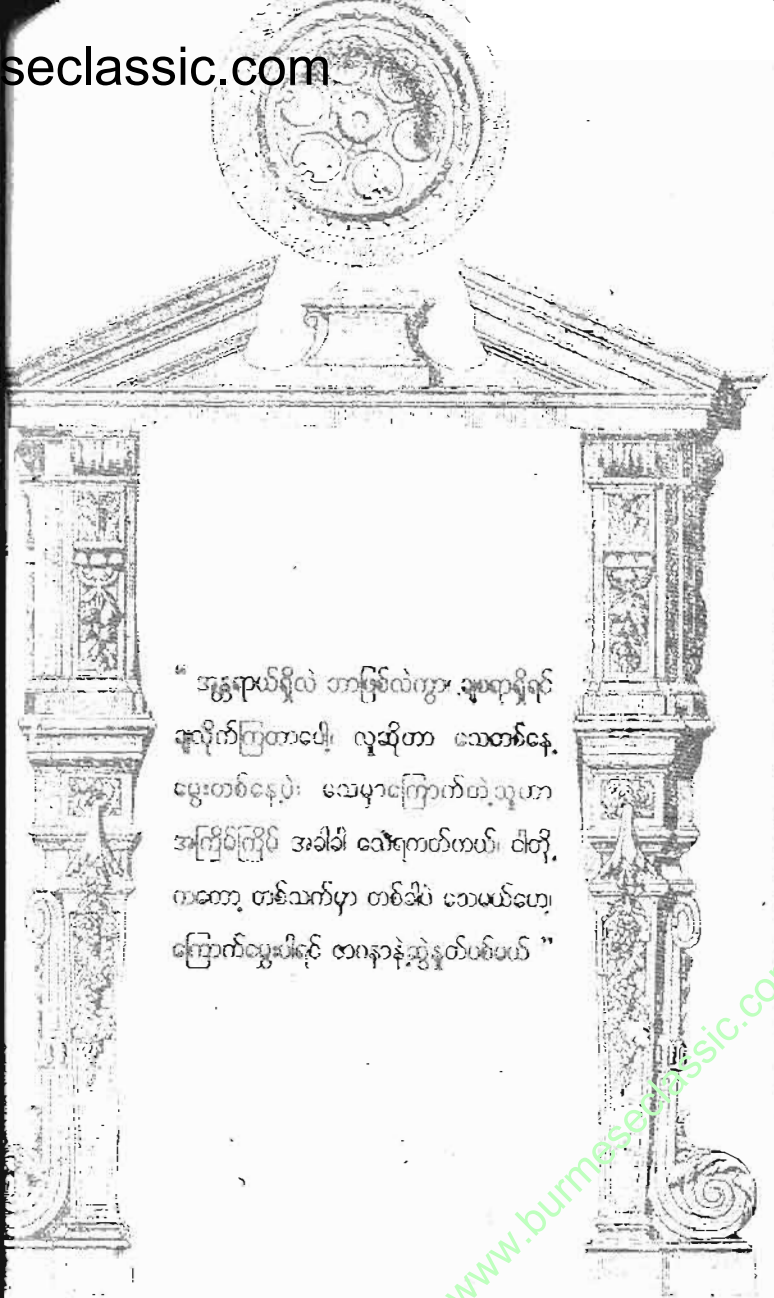 seclassic.com
“ အန္တရာယ်ရှိလဲ ဘာဖြစ်လဲကွာ၊ ချစရာရှိရင်
ချလိုက်ကြတာပေါ့၊ လူဆိုတာ သေတစ်နေ့
မွေးတစ်နေ့ပဲ၊ သေမှာကြောက်တဲ့သူဟာ
အကြိမ်ကြိမ် အခါခါ သေရကတ်တယ်၊ ငါတို့
ကတော့ တစ်သက်မှာ တစ်ခါပဲ သေမယ်ဟေ့၊
ကြောက်မွှေးပါရင် ဇာဂနာနဲ့ဆွဲနှုတ်ပစ်မယ် ”
www.burmeseclassic.com